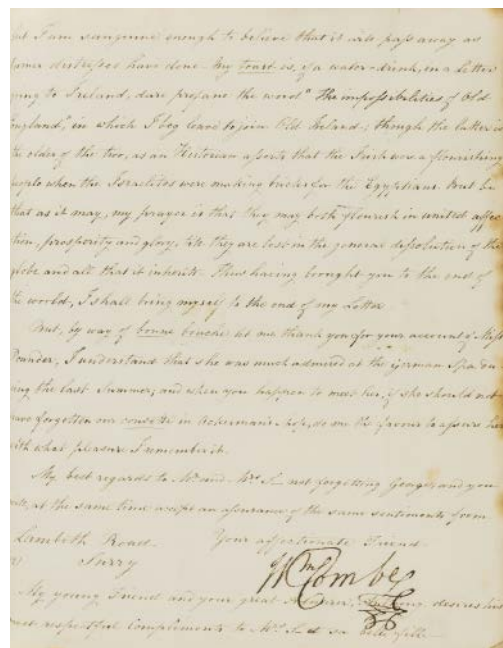 but I am sanguine enough to believe that it will pass away as
former distresses have done. My toast is, if a water-drinker, in a Letter
going to Ireland, dare profane the word "the impossibilities of Old
England", in which I beg leave to join Old Ireland; though the latter is
the older of the two, as an Historian asserts that the Irish was a flourishing
people when the Israelites were making bricks for the Egyptians. But be
that as it may, my prayer is that they may both flourish in united affec
tion, prosperity and glory, till they are lost in the general dissolution of the
globe and all that it inherits. Thus having brought you to the end of
the world, I shall bring myself to the end of my Letter.
But, by way of bonne bouche let me thank you for your account of Miss
Pounder, I understand that she was much admired at the german Spa du
ring the last Summer; and when you happen to meet her, if she should not
have forgotten our in Ackermann's shop, do me the favour to assure her
with what pleasure I remember it.
My best regards to Mr. and Mrs. S— not forgetting George; and you
will, at the same time accept an assurance of the same sentiments from
Lambeth Road. Your affectionate Friend
Surry Wm Combe
My young Friend and your great Admirer, desires his
most respectful Compliments to Mrs. S. et sa belle fille.